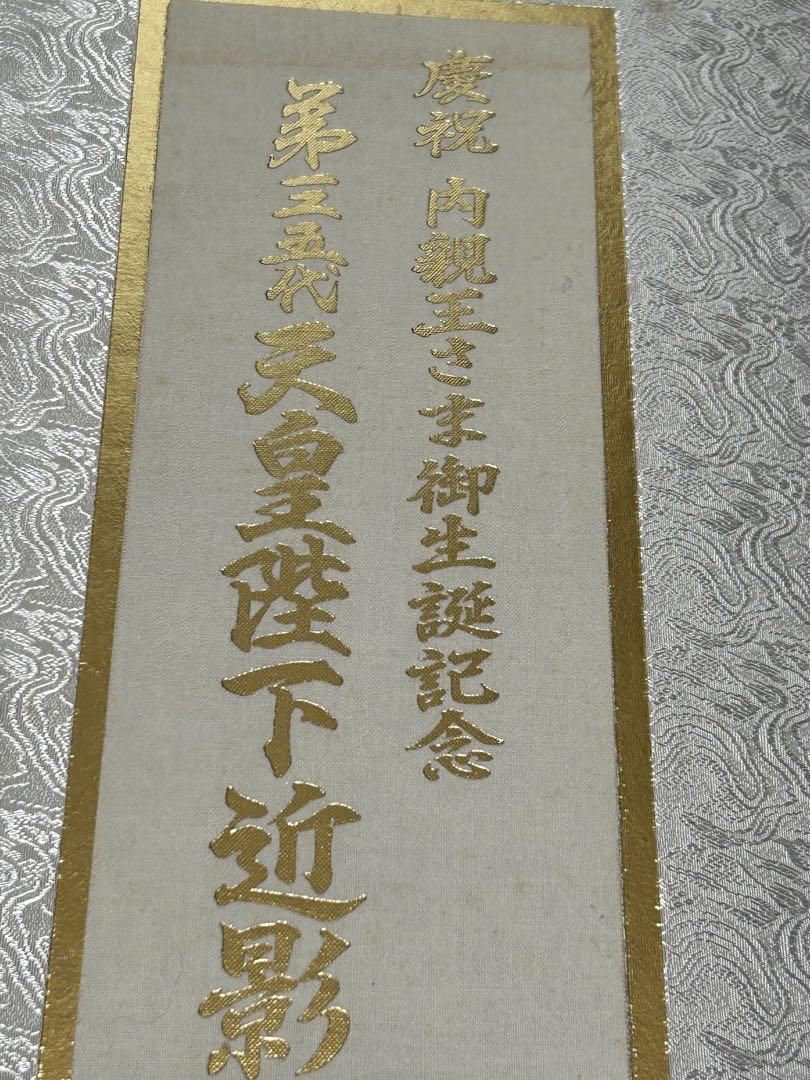 慶祝 内親王さま御生誕記念
第一二五代 天皇陛下近影